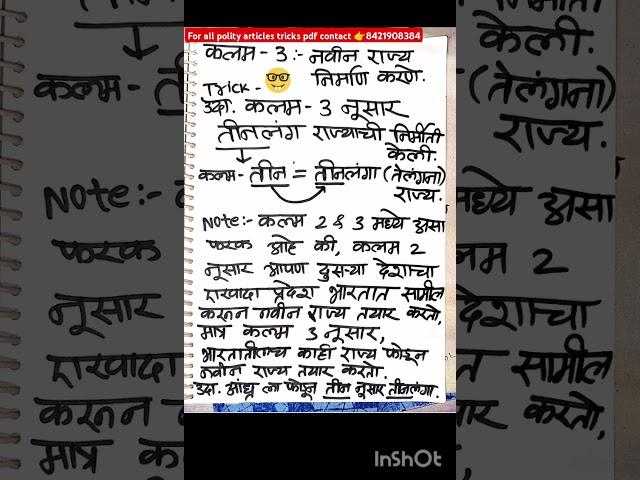 For all polity articles tricks pdf contact 👉8421908384
कलम - 3 :- नवीन राज्य
निर्माण करणे.
Trick - 🤓
उदा. कलम - 3 नूसार
तीनलंग राज्याची निर्मीती
केली.
कलम- तीन = तीनलंगा (तेलंगना)
राज्य.
Note:- कलम 2 & 3 मध्ये असा
फरक आहे की, कलम 2
नूसार आपण दुसऱ्या देशाचा
एखादा प्रदेश भारतात सामील
करून नवीन राज्य तयार करतो,
मात्र कलम 3 नूसार,
भारतातीलच काही राज्य फोडून
नवीन राज्य तयार करतो.
उदा. आंध्र ला फोडून तीन नूसार तीनलंगा.
InShOt